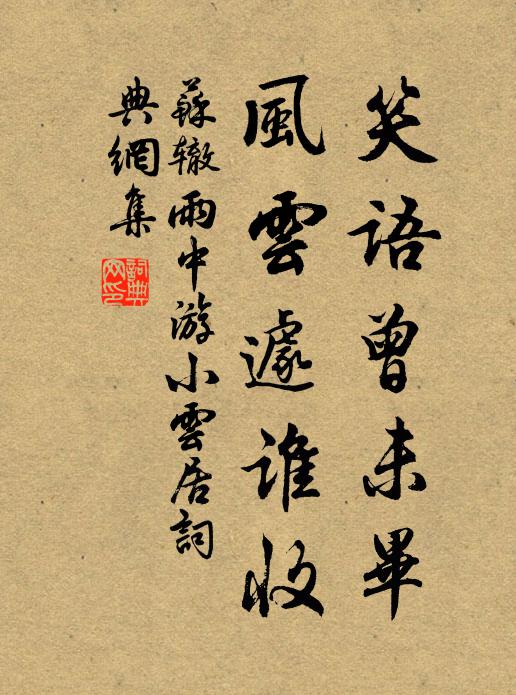 笑語曾未畢
風雲遽誰收
蘇辙雨中游小雲居詞
典網集
詞典网印